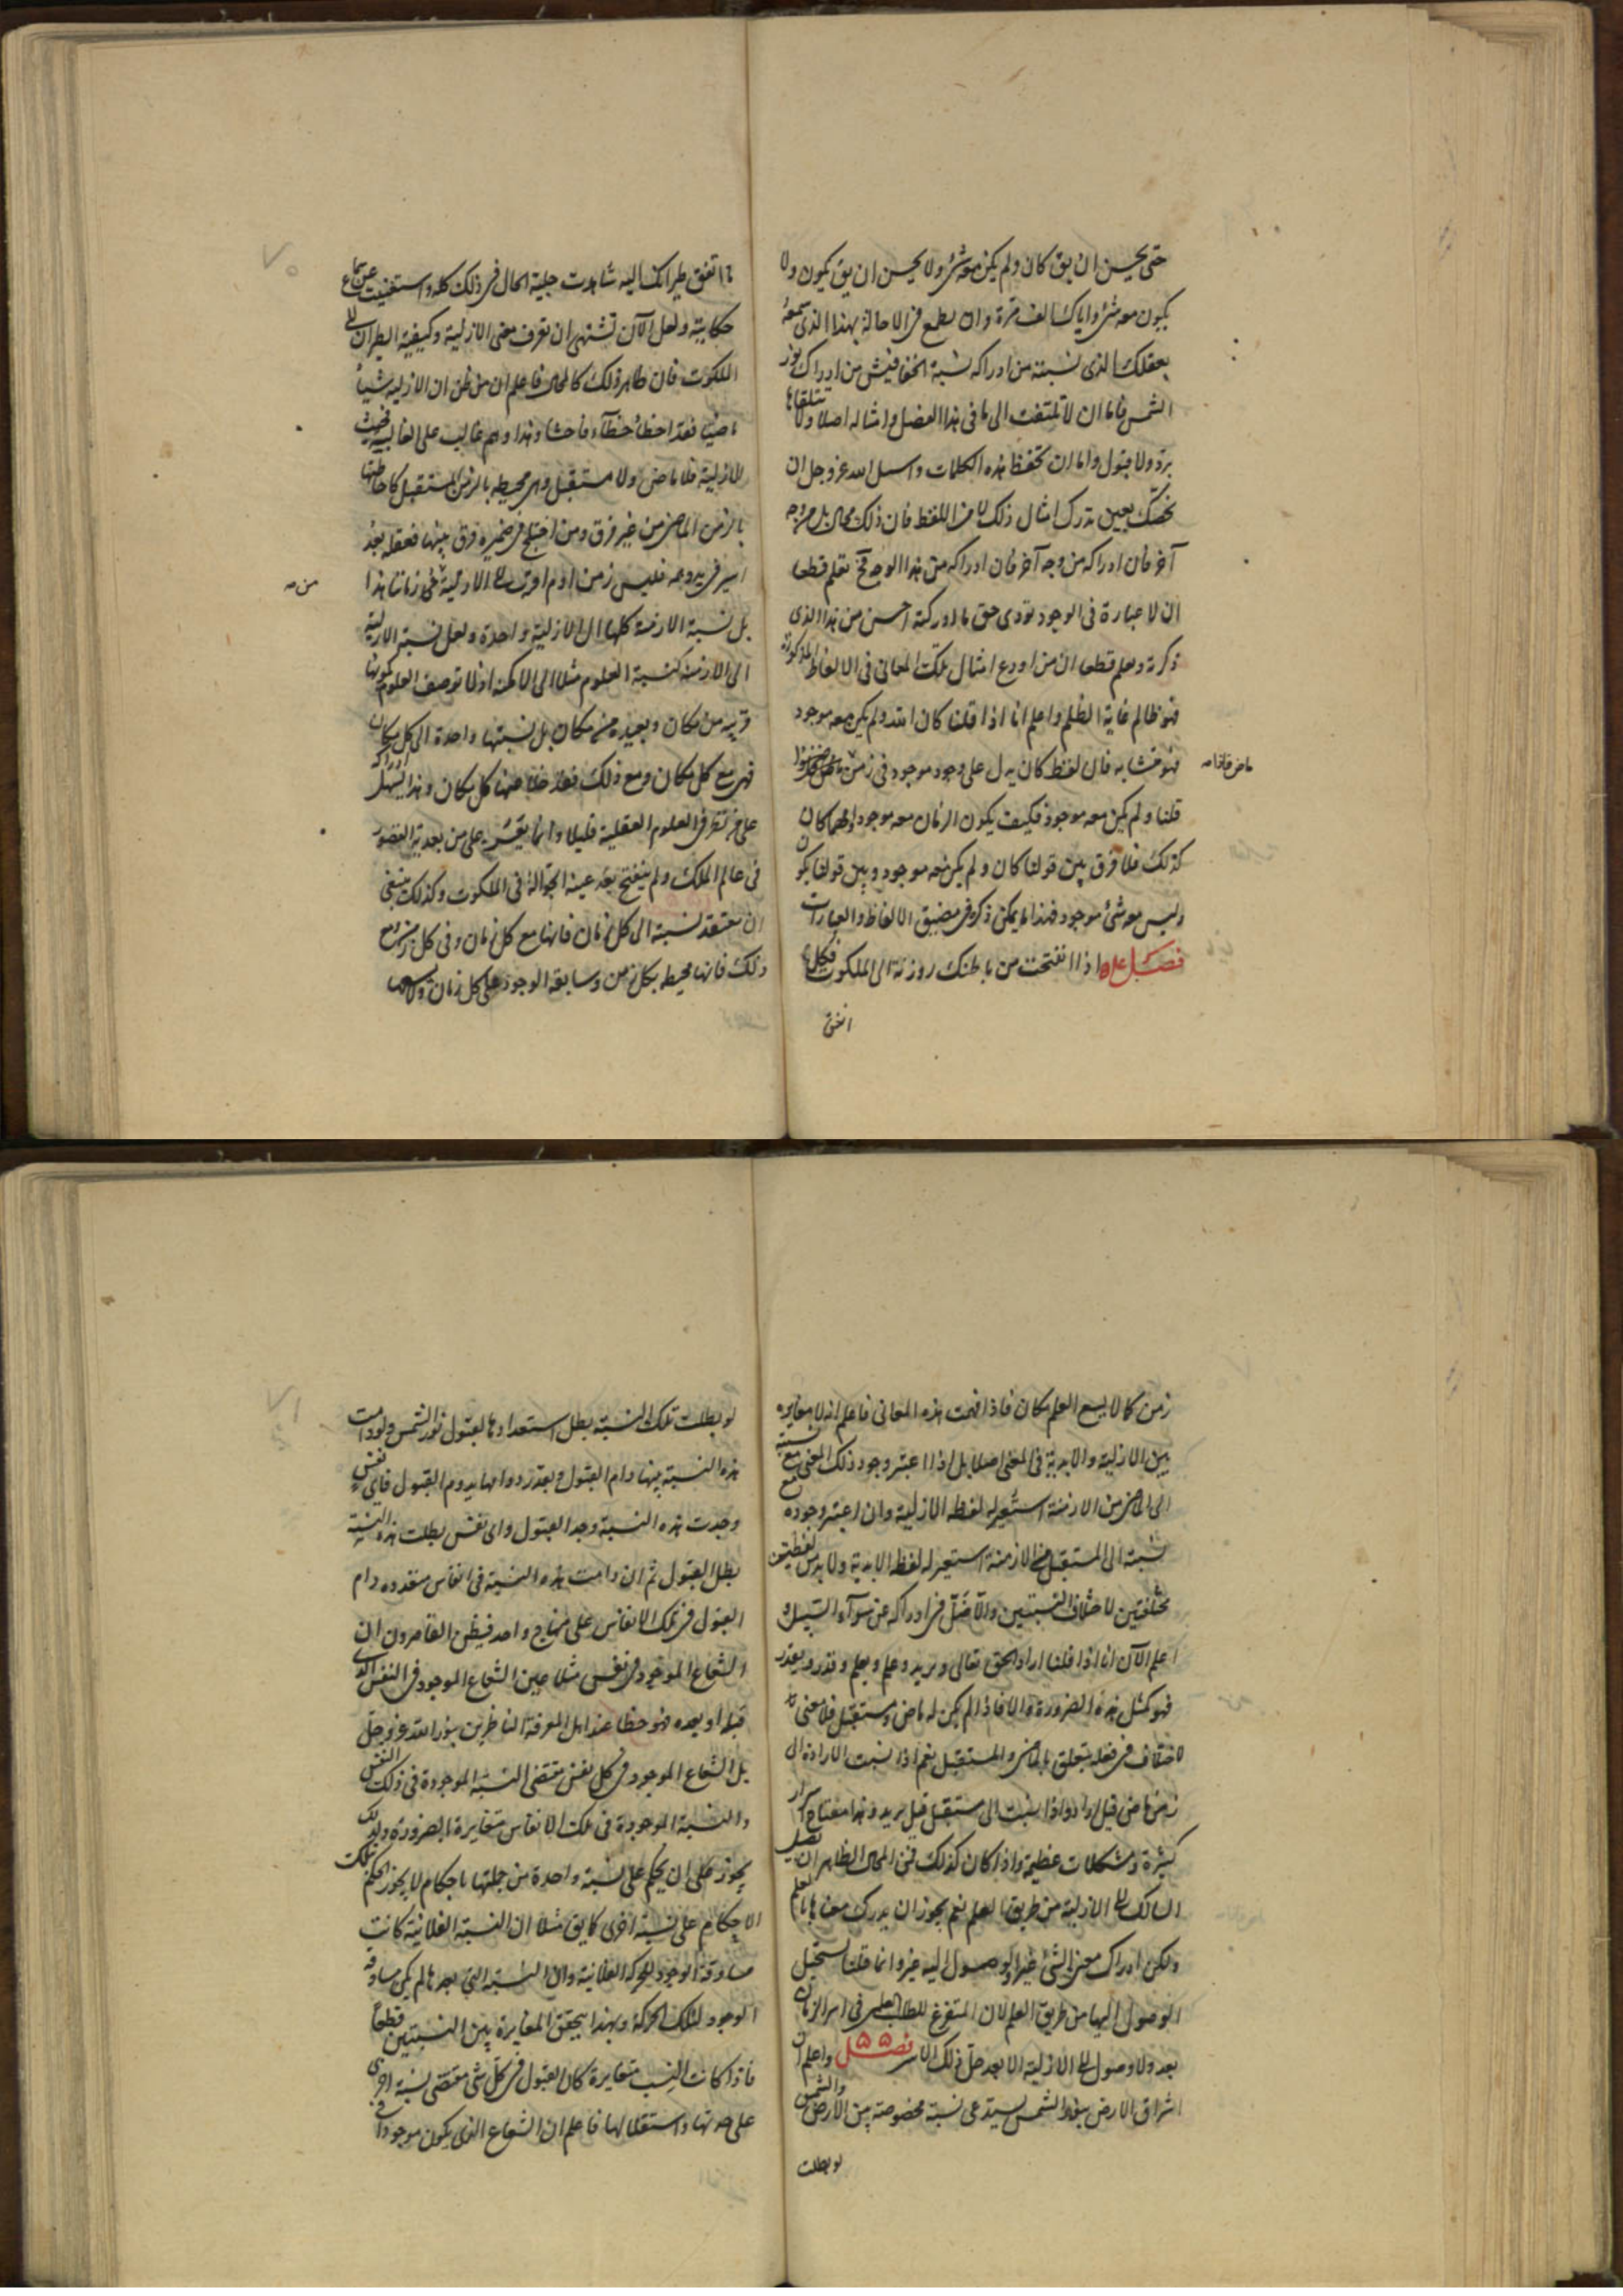 حتى يحسن ان يق كان ولم يكن معه شئ ولا يحسن ان يق يكون ولا
يكون معه شئ واياك الف مرة وان يطمع فى الاحاطة بهذا الذى تسمعه
بعقلك الذى نسبته من ادراكه نسبة الخفافيش من ادراك نور
الشمس فاما ان لا تلتفت الى ما فى هذا الفصل وامثاله اصلا ولا تتلقاها
برد ولا قبول واما ان تحفظ هذه الكلمات واسئل الله عز وجل ان
يخصّك بعين تدرك امثال ذلك لا من اللفظ فان ذلك محال بل من وجه
آخر فان ادراكه من وجه آخر فان ادراكه من هذا الوجه فح تعلم قطعا
ان لا عبارة فى الوجود تؤدى حق ما ادركته احسن من هذا الذى
ذكرته وتعلم قطعا ان من اودع امثال تلك المعانى فى الالفاظ المذكورة
فهو ظالم غاية الظلم واعلم انا اذا قلنا كان الله ولم يكن معه موجود
فهو متشابه فان لفظ كان يدل على وجود موجود فى زمن
ماض فاذا صه
قلنا ولم يكن معه موجود فكيف يكون الزمان معه موجودا ومهما كان
كذلك فلا فرق بين قولنا كان ولم يكن معه موجود وبين قولنا يكون
وليس معه شئ موجود فهذا ما يمكن ذكره فى مضيق الالفاظ والعبارات
فصل ٥٤ اذا انفتحت من باطنك روزنة الى الملكوت فكلما
اتفق
ما اتفق طيرانك اليه شاهدت جلية الحال فى ذلك كله واستغنيت عن سماع
حكايته ولعل الآن تشتهى ان تعرف معنى الازلية وكيفية الطيران الى
الملكوت فان ظاهر ذلك كالمحال فاعلم ان من ظن ان الازلية شيئا
ماضيا فقد اخطأ خطآء فاحشا وهذا وهم غالب على الغالبية فحيث
الازلية فلا ماضى ولا مستقبل وهى محيطه بالزمن المستقبل كاحاطتها
بالزمن الماضى من غير فرق ومن اختلج فى ضميره فرق بينهما فعقله بعدُ
اسير فى يد وهمه فليس زمن ادم اقرب الى الازلية من زماننا هذا
من صه
بل نسبة الازمنة كلها الى الازلية واحدة ولعل نسبة الازلية
الى الازمنة كنسبة العلوم مثلا الى الامكنة اذ لا توصف العلوم بكونها
قريبه من مكان وبعيده من مكان بل نسبتها واحدة الى كل مكان
فهى مع كل مكان ومع ذلك فقد خلا عنها كل مكان وهذا يسهل ادراكه
على من تعرف العلوم العقلية قليلا وانما يعسر على من بعد به القصور
فى عالم الملك ولم ينفتح بعد عينه الجوالة فى الملكوت وكذلك ينبغى
ان تعتقد نسبته الى كل زمان فانها مع كل زمان وفى كل زمن ومع
ذلك فانها محيطه بكل زمن وسابقة الوجود على كل زمان ولا يسعها
زمن كما لا يسع العلم مكان فاذا فهمت هذه المعانى فاعلم انه لا مغايره
بين الازلية والابدية فى المعنى اصلا بل اذا اعتبر وجود ذلك المعنى مع نسبته
الى الماضى من الازمنة استعير له لفظ الازلية وان اعتبر وجوده مع
نسبته الى المستقبل من الازمنة استعير له لفظ الابدية ولا بد من لفظتين
مختلفتين لاختلاف النسبتين والا ضلّ فى ادراكه عن سوآء السبيل و
اعلم الآن انا اذا قلنا اراد الحق تعالى ويريد وعلم ويعلم وقدر ويقدر
فهو كمثل هذه الضرورة والا فاذا لم يكن له ماض ومستقبل فلا معنى
لاختلاف فى فعله يتعلق بالماضى والمستقبل نعم اذا نسبت الارادة الى
زمن ماض قيل اراد واذا نسبت الى مستقبل قيل يريد وهذا مفتاح اسرار
كثيرة ومشكلات عظيمة واذا كان كذلك فمن المحال الظاهر ان يصل
السالك الى الازلية من طريق العلم نعم يجوز ان يدرك معناها بالعلم
ولكن ادراك معنى الشئ غير والوصول اليه غير وانما قلنا يستحيل
الوصول اليها من طريق العلم لان المتفرغ للطلب العلمى فى اسر الزمان
بعد ولا وصول الى الازلية الا بعد حل ذلك الاسر فصل ٥٥ واعلم ان
اشراق الارض بنور الشمس يستدعى نسبة مخصوصة بين الارض والشمس
لو بطلت
لو بطلت تلك النسبة بطل استعدادها لقبول نور الشمس ولو دامت
هذه النسبة بينهما دام القبول وبقدر دوامها يدوم القبول فاى نفس
وجدت هذه النسبة وجد القبول واى نفس بطلت هذه النسبة
بطل القبول ثم ان دامت هذه النسبة فى انفاس متعدده دام
القبول فى تلك الانفاس على منهاج واحد فيظن القاصرون ان
الشعاع الموجود فى نفس مثلا عين الشعاع الموجود فى النفس الذى
قبله او بعده فهو خطا عند اهل المعرفة الناظرين بنور الله عز وجل
بل الشعاع الموجود فى كل نفس مقتضى النسبة الموجودة فى ذلك النفس
والنسبة الموجودة فى تلك الانفاس متغايرة بالضرورة ولذلك
يجوز على ان يحكم على نسبة واحدة من جملتها باحكام لا يجوز الحكم بتلك
الاحكام على نسبة اخرى كما يق مثلا ان النسبة الفلانية كانت
مساوقة الوجود للحركة الفلانية وان النسبة التى بعدها لم يكن مساوقه
الوجود لتلك الحركة وبهذا يتحقق المغايرة بين النسبتين قطعا
فاذا كانت النسب متغايرة كان القبول فى كل شى مقتضى نسبة اخرى
على حدتها واستقلالها فاعلم ان الشعاع الذى يكون موجودا فى